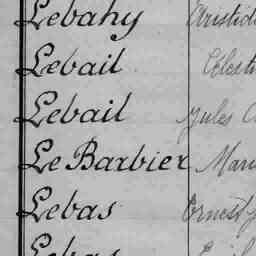 Lebahy Aristid
Lebail Célesti
Lebail Jules
Le Barbier Mari
Lebas Ernest J
Lebas